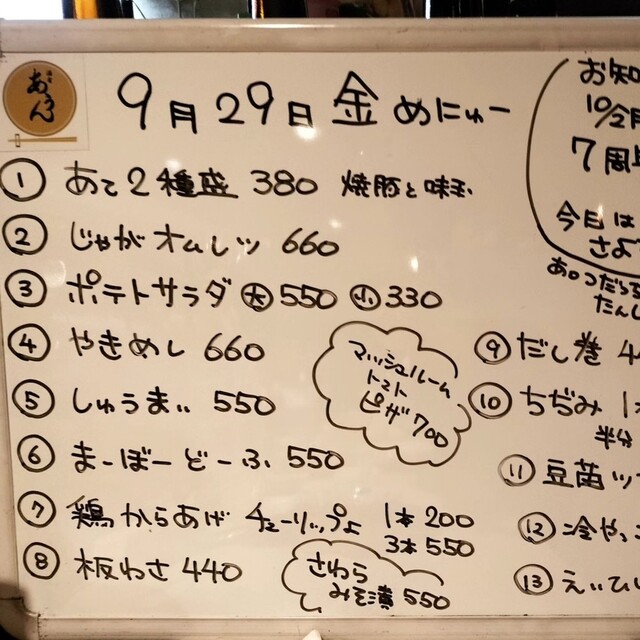 9月29日 金 めにゅー
① あて2種盛 380 焼豚と味玉
② じゃがオムレツ 660
③ ポテトサラダ 大 550 小 330
④ やきめし 660
⑤ しゅうまい 550
⑥ まーぼーどーふ 550
⑦ 鶏からあげ チューリップ 1本 200
3本 550
⑧ 板わさ 440
マッシュルーム
トマト
ピザ 700
さわら
みそ漬 550
⑨ だし巻 44
⑩ ちぢみ 1
半分
⑪ 豆苗
⑫ 冷やっこ
⑬ えいひ
お知
10/2月
7周
今日は
さよ